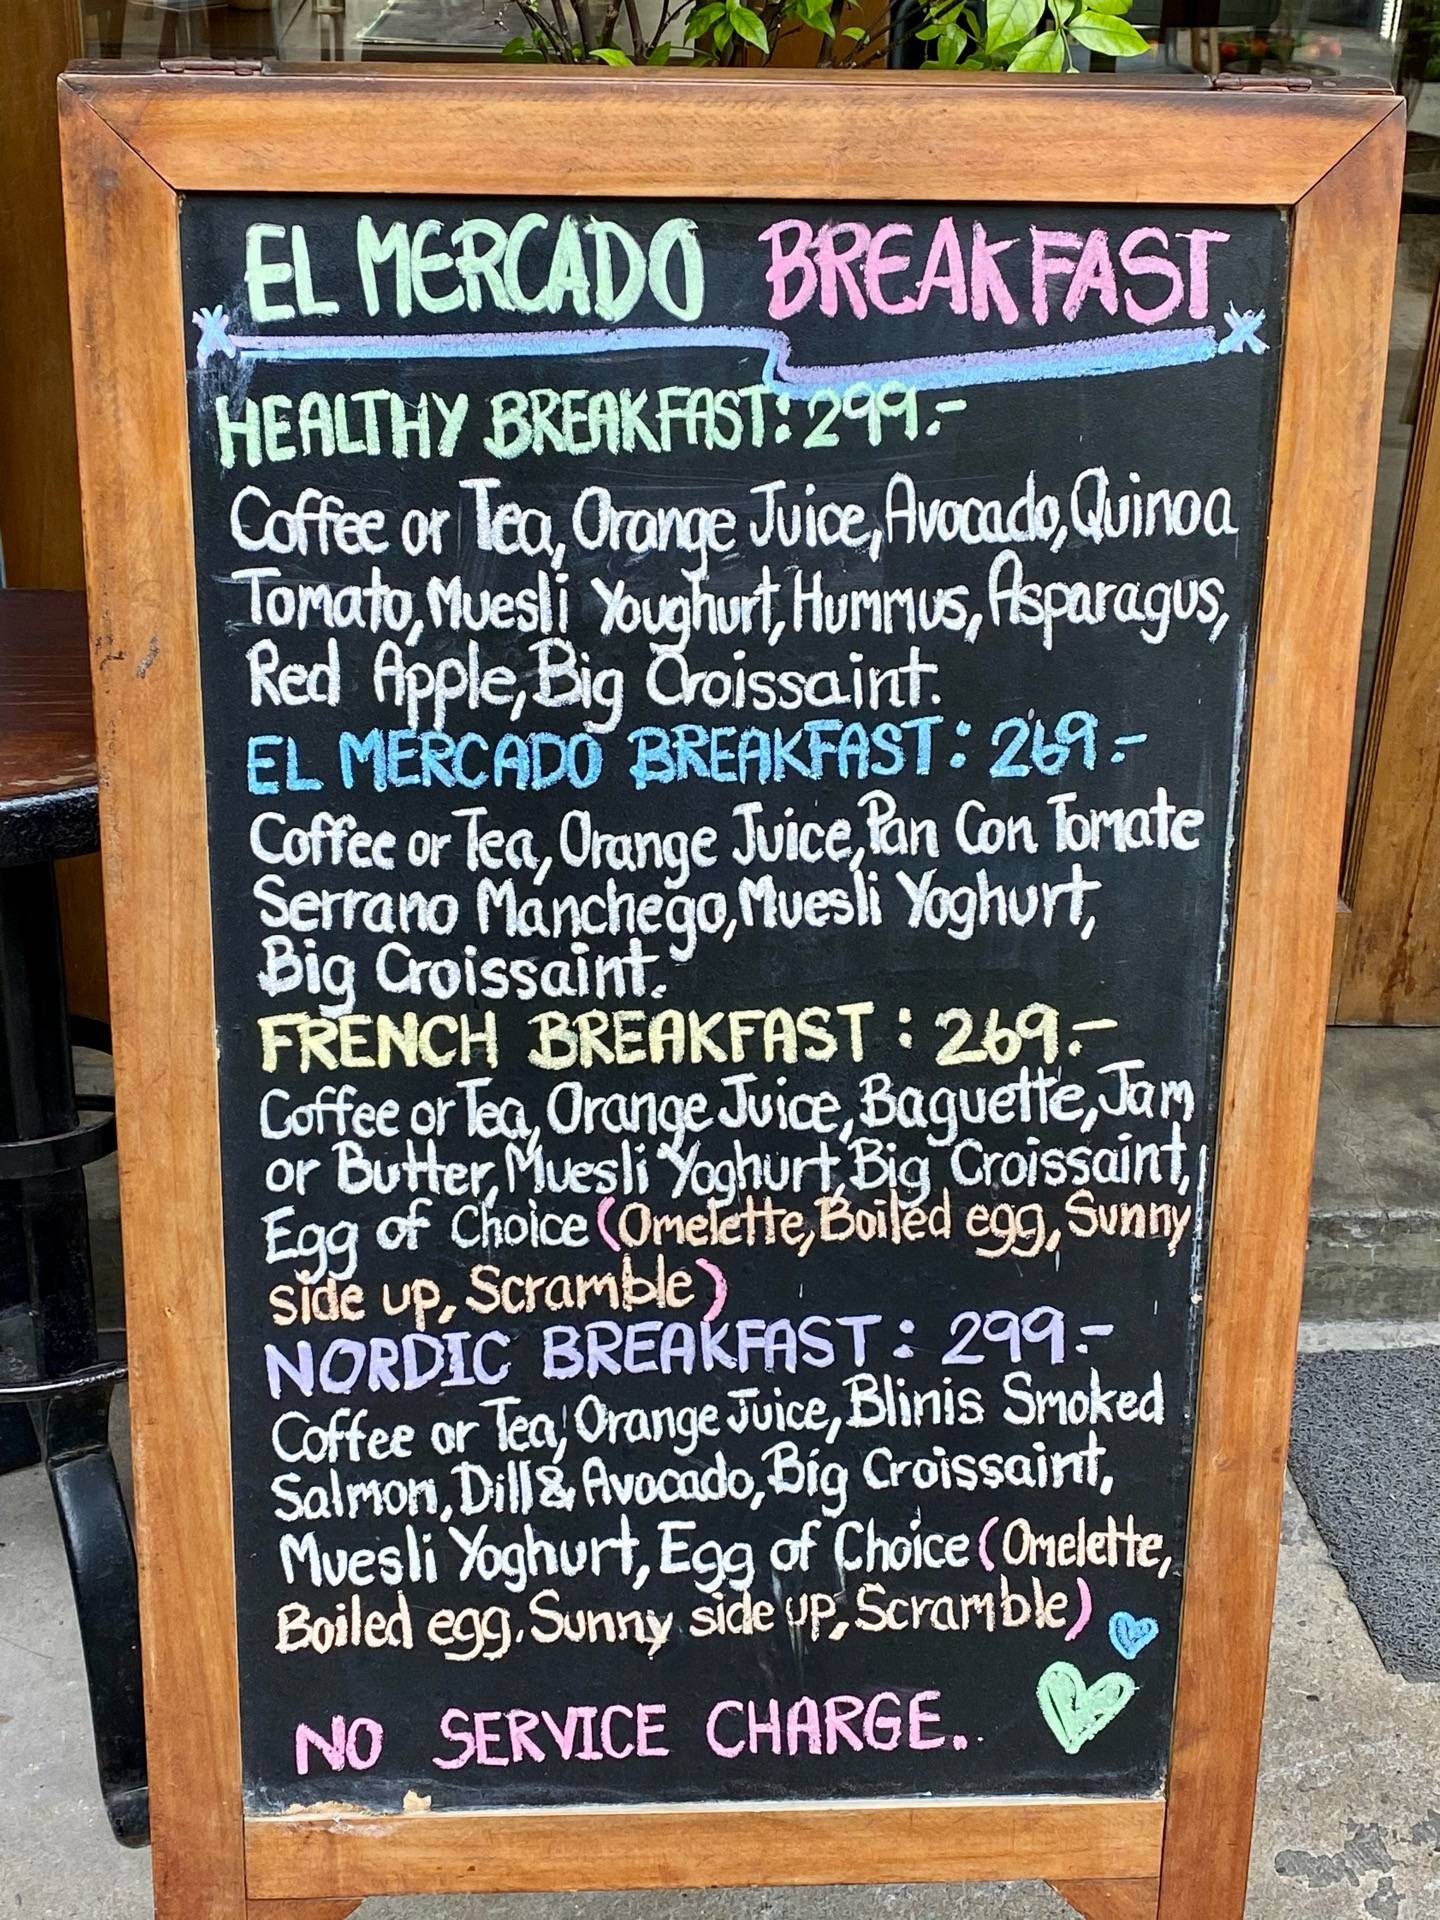 EL MERCADO BREAKFAST
HEALTHY BREAKFAST: 299.-
Coffee or Tea, Orange Juice, Avocado, Quinoa
Tomato, Muesli Youghurt, Hummus, Asparagus,
Red Apple, Big Croissaint.
EL MERCADO BREAKFAST: 269.-
Coffee or Tea, Orange Juice, Pan Con Tomate
Serrano Manchego, Muesli Yoghurt,
Big Croissaint.
FRENCH BREAKFAST: 269.-
Coffee or Tea, Orange Juice, Baguette, Jam
or Butter, Muesli Yoghurt, Big Croissaint,
Egg of Choice (Omelette, Boiled egg, Sunny
side up, Scramble)
NORDIC BREAKFAST: 299.-
Coffee or Tea, Orange Juice, Blinis Smoked
Salmon, Dill & Avocado, Big Croissaint,
Muesli Yoghurt, Egg of Choice (Omelette,
Boiled egg. Sunny side up, Scramble)
NO SERVICE CHARGE.